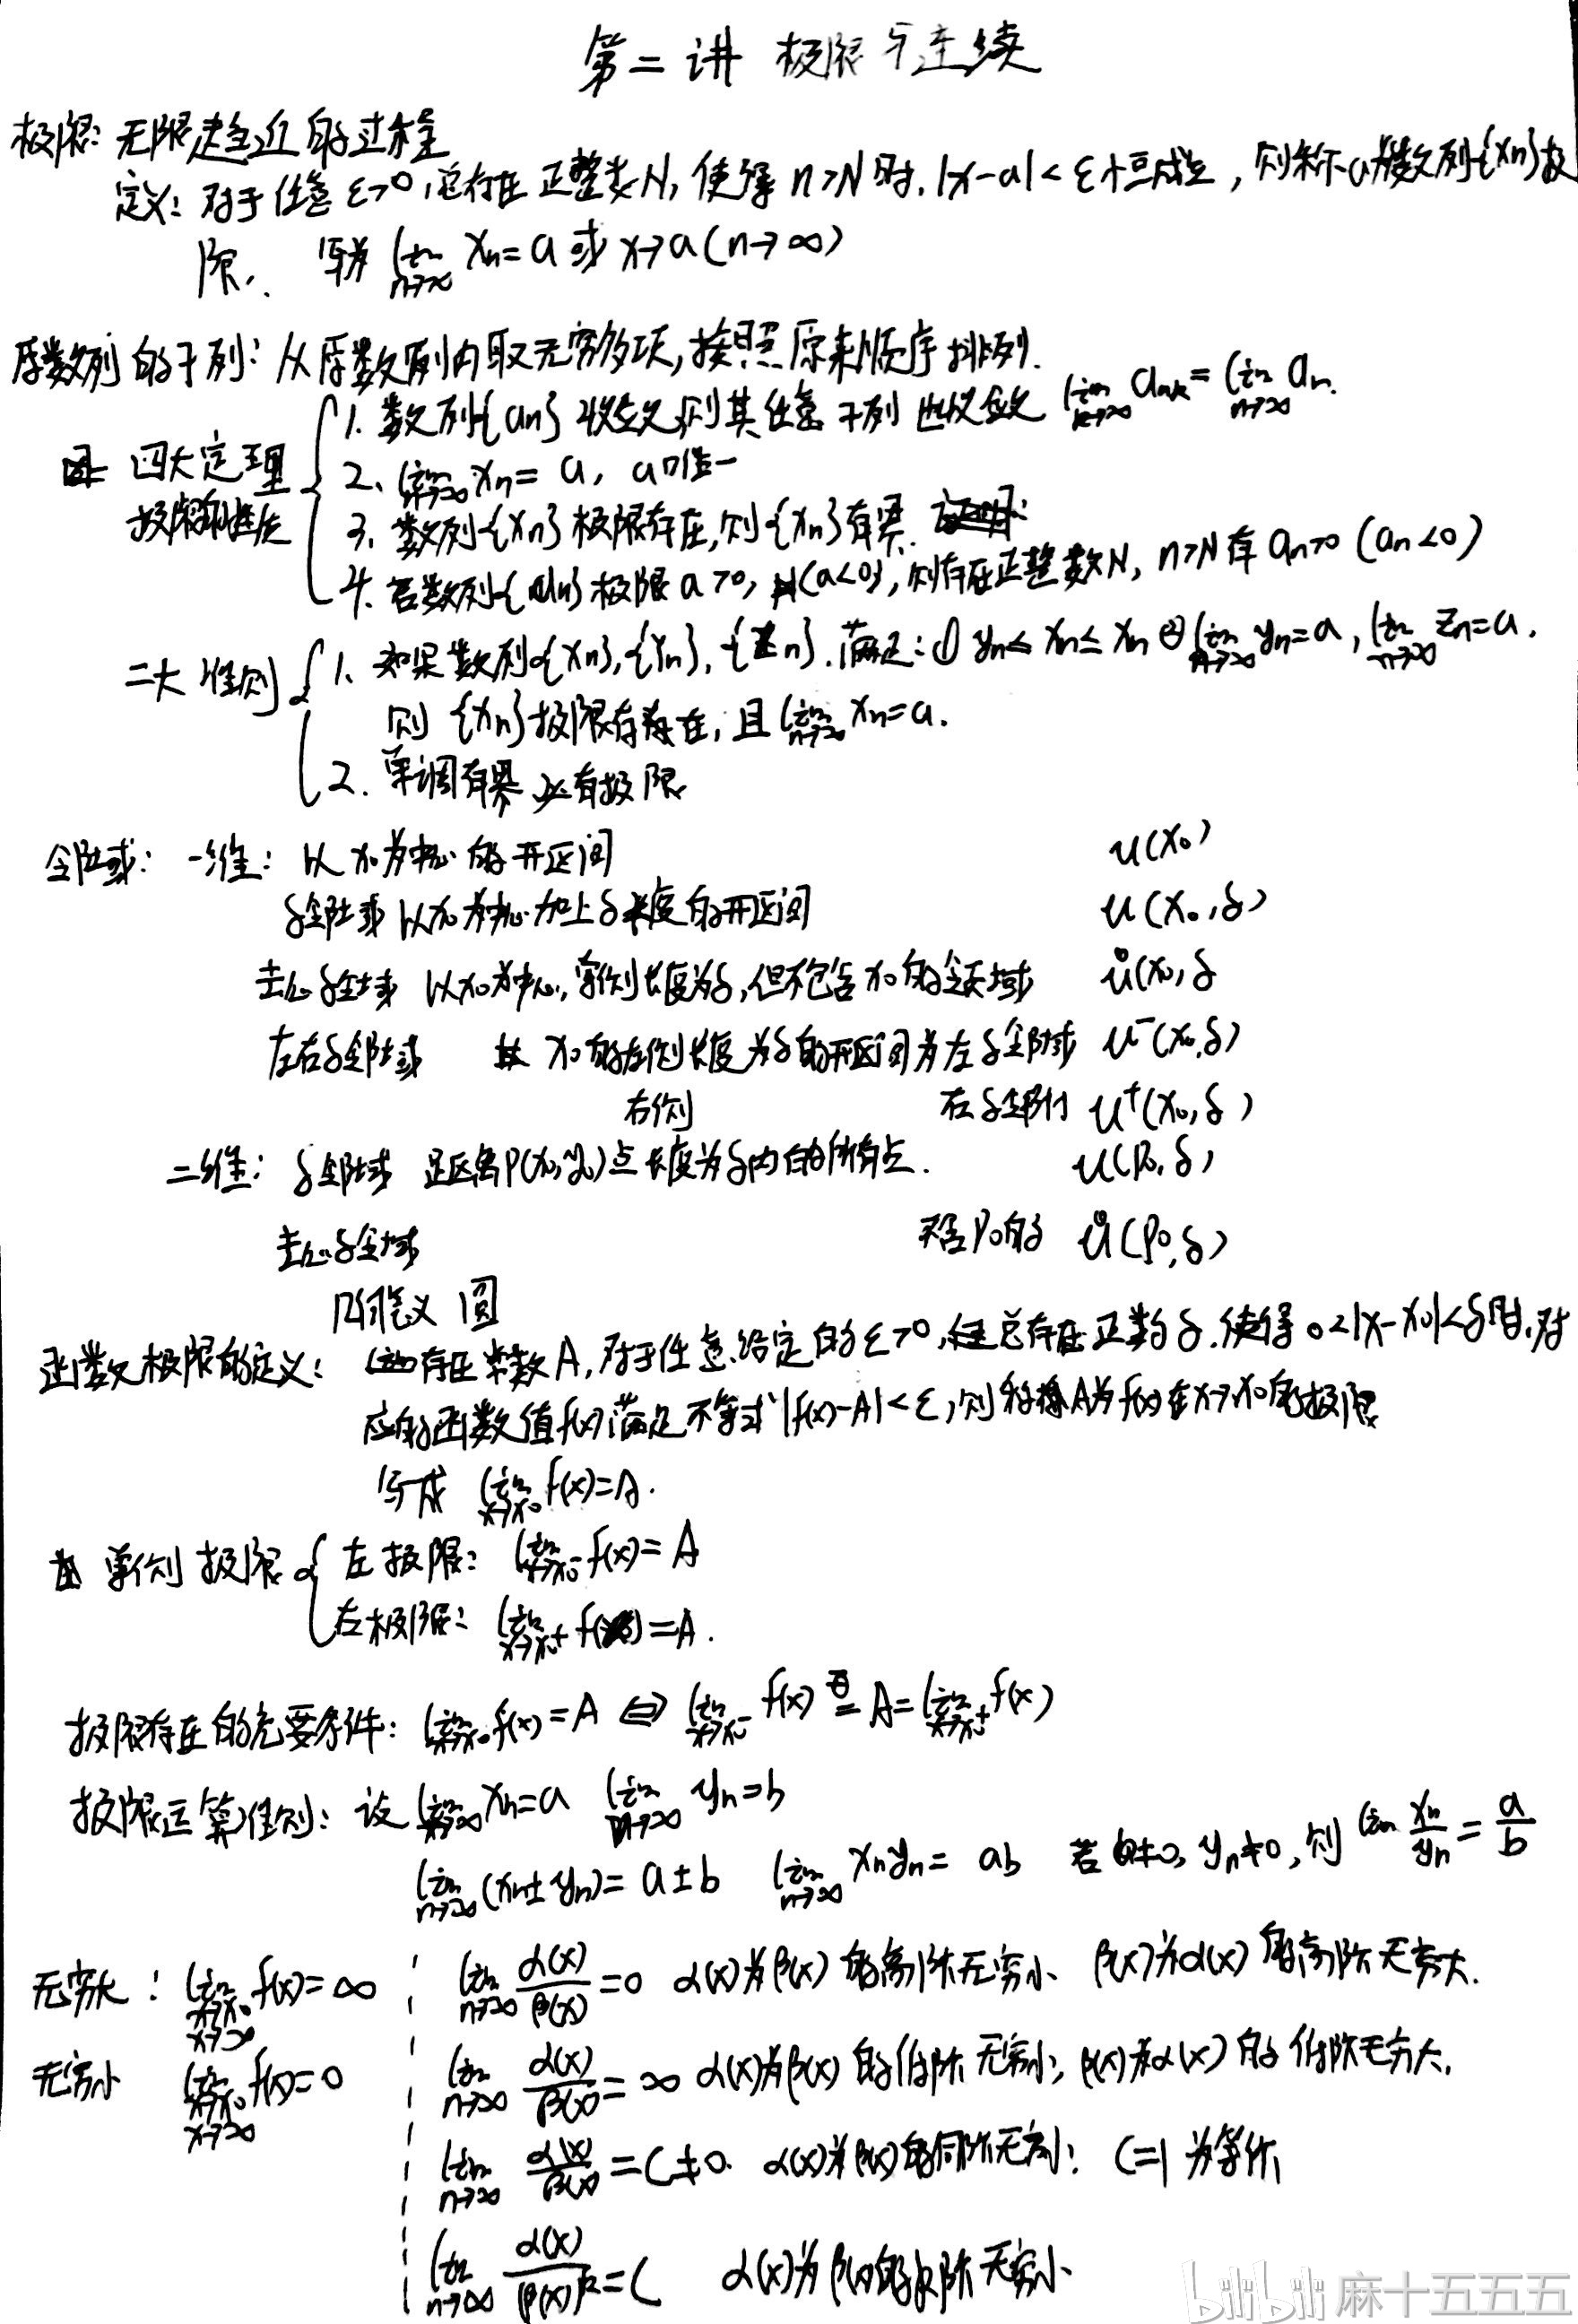 第二讲 极限与连续
极限: 无限趋近的过程
定义: 对于任意 ε>0, 总存在正整数N, 使得 n>N 时, |x-a|<ε 恒成立, 则称a为数列{xn}极
限. 写为 lim n→∞ xn=a 或 x→a (n→∞)
原数列的子列: 从原数列内取无穷多项, 按照原来顺序排列.
四大定理
极限的性质
1. 数列{an}收敛,则其任意子列也收敛 lim k→∞ ank = lim n→∞ an.
2. lim n→∞ xn = a, a唯一
3. 数列{xn}极限存在,则{xn}有界.
4. 若数列{an}极限 a>0, (a<0), 则存在正整数N, n>N有 an>0 (an<0)
二大准则
1. 如果数列{xn},{yn},{zn}.满足: ① yn≤xn≤xn ② lim n→∞ yn=a, lim n→∞ zn=a.
则 {xn}极限存在, 且 lim n→∞ xn=a.
2. 单调有界必有极限
邻域: 一维: 以x0为中心的开区间 u(x0)
δ邻域 以x0为中心加上δ长度的开区间 u(x0,δ)
去心δ邻域 以x0为中心,两侧长度为δ,但不包含x0的邻域 ů(x0,δ
左右δ邻域 x0的左侧长度为δ的开区间为左δ邻域 u⁻(x0,δ)
右侧 右δ邻 u⁺(x0,δ)
二维: δ邻域 距离P(x0,y0)点长度为δ内的所有点. u(P0,δ)
去心δ邻域 不含P0的 ů(P0,δ)
几何意义 圆
函数极限的定义: 存在常数A, 对于任意给定的ε>0, 总存在正数δ.使得 0<|x-x0|<δ时,对
应的函数值f(x)满足不等式|f(x)-A|<ε,则称A为f(x)在x→x0的极限
写成 lim x→x0 f(x)=A.
单侧极限 左极限: lim x→x0⁻ f(x)=A
右极限: lim x→x0⁺ f(x)=A.
极限存在的充要条件: lim x→x0 f(x)=A ⇔ lim x→x0⁻ f(x) = A = lim x→x0⁺ f(x)
极限运算准则: 设 lim n→∞ xn=a lim n→∞ yn=b
lim n→∞ (xn±yn)=a±b lim n→∞ xnyn=ab 若 b≠0, yn≠0, 则 lim xn/yn = a/b
无穷大: lim x→x0 x→∞ f(x)=∞ lim n→∞ α(x)/β(x)=0 α(x)为β(x)的高阶无穷小、β(x)为α(x)的高阶无穷大.
无穷小 lim x→x0 x→∞ f(x)=0 lim n→∞ α(x)/β(x)=∞ α(x)为β(x)的低阶无穷小; β(x)为α(x)的低阶无穷大.
lim n→∞ α(x)/β(x)=C≠0. α(x)为β(x)的同阶无穷小: C=1 为等价
lim n→∞ α(x)/[β(x)]^k=C α(x)为β(x)的k阶无穷小
bilibili 麻十五五五